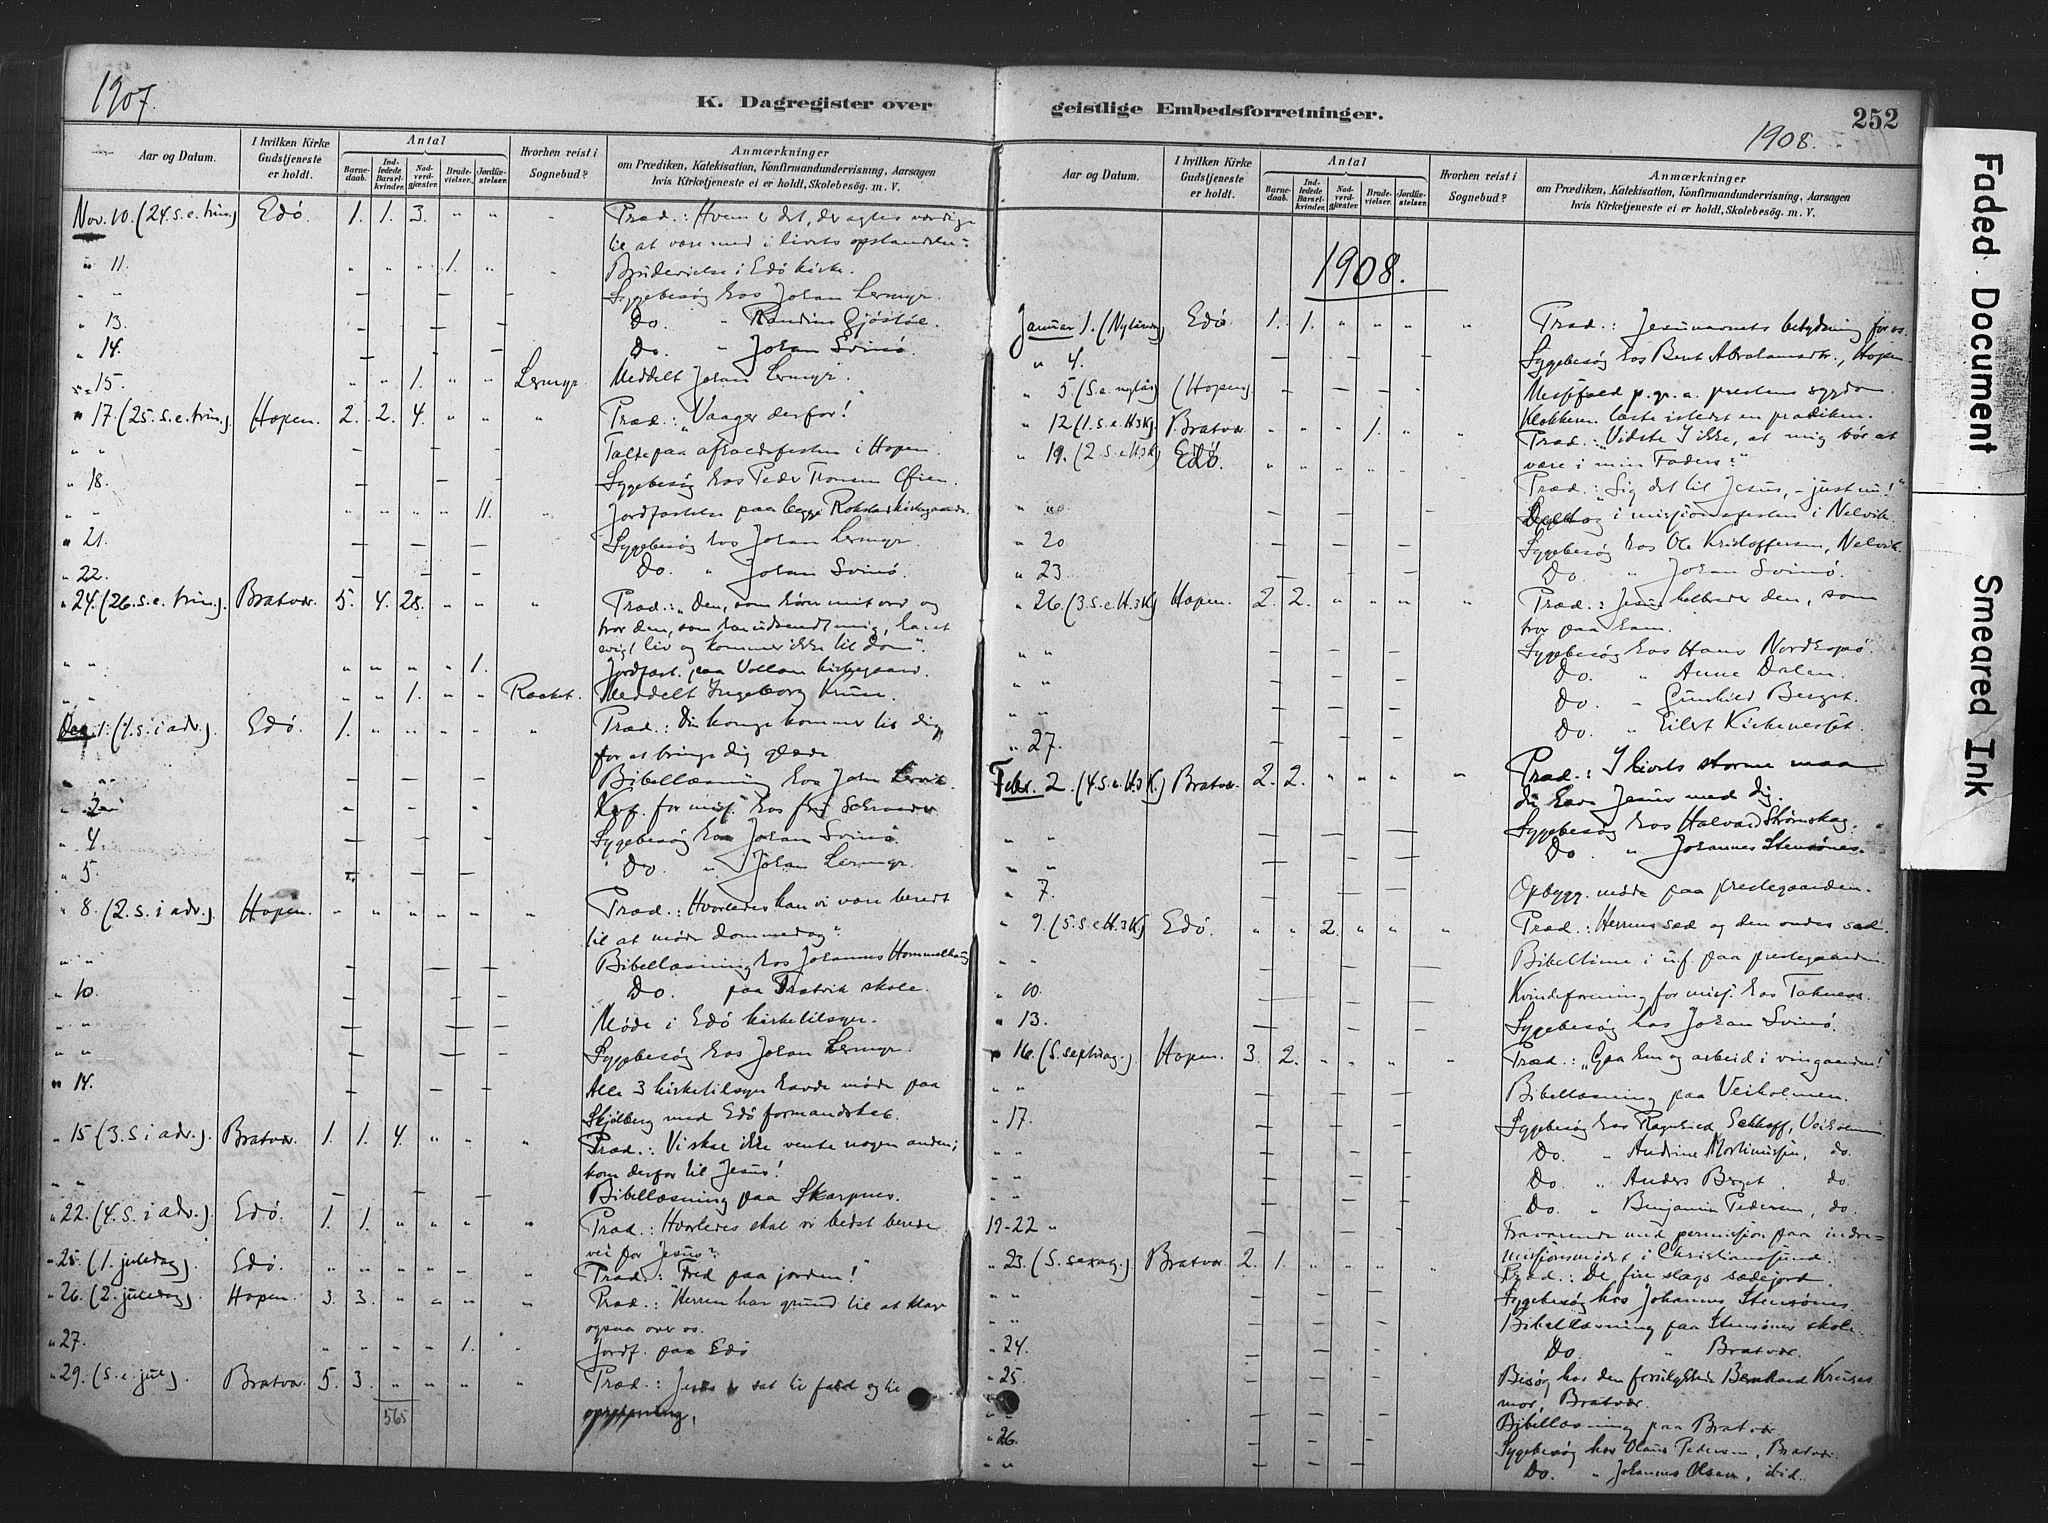 1907.
K. Dagregister over
Aar og Datum.
I hvilken Kirke Gudstjeneste er holdt.
Antal
Barnedaab.
Indledede Barselkvinder.
Nadverdgjæster.
Brudevielser.
Jordfæstelser.
Hvorhen reist i Sognebud?
Anmærkninger
om Prædiken, Katekisation, Konfirmandundervisning, Aarsagen
hvis Kirketjeneste ei er holdt, Skolebesøg. m. V.
Nov. 10. (24. s. e. trin.) Edö. 1. 1. 3. " " " Præd.: Hvem er det, der agtes værdige
til at være med i livets opstandelse
" 11. " " " 1. " " Brudevielse i Edö kirke.
" " Sygebesög hos Johan Lermyr.
" 13. Do. "
" 14. Do. " Johan Svinö.
" 15. 1. " " Lermyr. Meddelt Johan Lermyr.
" 17 (25. s. e. trin.) Hopen. 2. 2. 4. " " " Præd.: "Vaager derfor!"
" " Talte paa afholdsfesten i Hopen.
" 18. Sygebesög hos Peder
" " " " " " 11. " Jordfæstelse paa begge kirkegaarde.
" 21. Sygebesög hos Johan Lermyr.
" 22. Do. " Johan Svinö.
" 24. (26. s. e. trin.) Bratvær. 5. 4. 28. " " " Præd.: "Den, som hörer mit ord og
tror den, som har udsendt mig, haver
evigt liv og kommer ikke til dom".
" " " " " " 1. Jordfæst. paa Vollan kirkegaard.
" " 1. Meddelt Ingeborg
Dec. 1. (1. s. i adv.) Edö. 1. " " " " " Præd.: Din konge kommer til dig
for at bringe dig glæde
" " Bibellæsning hos John Lervik.
" 2 for misj. hos
" 4. Sygebesög hos Johan Svinö
" 5. Do. " Johan Lermyr.
" 8. (2. s. i adv.) Hopen. " " " " " " Præd.: Hvorledes kan vi være beredt
til at möde dommedag?
" " Bibellæsning hos Johannes
" 10. Do. paa skole.
" " Möde i Edö kirketilsyn.
" " Sygebesög hos Johan Lermyr.
" 14. Alle 3 kirketilsyn havde möde paa
Skjölberg med Edö formandskab.
" 15 (3. s. i adv.) Bratvær. 1. 1. 4. " " " Præd.: Vi skal ikke vente nogen anden;
kom derfor til Jesus!
" " Bibellæsning paa Skarpnes.
" 22. (4. s. i adv.) Edö. 1. 1. " " " " Præd.: Hvorledes skal vi bedst berede
vei for Jesus?
" 25. (1. juledag) Edö. Præd.: "Fred paa jorden!"
" 26. (2. juledag) Hopen. 3. 3. " " " " Præd.: Herren har grund til at klage
ogsaa over os.
" 27. " " " " 1. " Jordf. paa Edö
" 29. (s. e. jul). Bratvær. 5. 3. " " " " Præd.: Jesus er sat til fald og til
opreisning.
565
geistlige Embedsforretninger.
252
1908.
Aar og Datum.
I hvilken Kirke Gudstjeneste er holdt.
Antal
Barnedaab.
Indledede Barselkvinder.
Nadverdgjæster.
Brudevielser.
Jordfæstelser.
Hvorhen reist i Sognebud?
Anmærkninger
om Prædiken, Katekisation, Konfirmandundervisning, Aarsagen
hvis Kirketjeneste ei er holdt, Skolebesøg. m. V.
1908.
Januar 1. (Nytaarsd.) Edö. 1. 1. " " " " Præd.: Jesunavnets betydning for os.
" 4. Sygebesög hos Berit Abrahamsdtr., Hopen.
" 5 (S. e. nytaar) (Hopen) Messfald p. gr. a. prestens sygdom
Klokkeren læste istedet en prædiken.
" 12 (1. s. e. H3K). Bratvær. " " " 1. " " Præd.: "Vidste I ikke, at mig bör at
være i min Faders?"
" 19. (2. s. e. H3K) Edö. " " " " " " Præd.: "Sig det til Jesus, – just nu!"
" " Deltog i missionsfesten i Nelvik.
" 20 Sygebesög hos Ole Kristoffersen, Nelvik.
" 23 Do. " Johan Svinö.
" 26. (3. s. e. H3K) Hopen. 2. 2. " " " " Præd.: Jesus helbreder den, som
tror paa ham.
" " Sygebesög hos Hans
" " Do. " Anne Dalen.
" " Do. " Gunhild Berget.
" 27. Do. " Eilert
Febr. 2. (4. s. e. H3K.) Bratvær. 2. 2. " " " " Præd.: I livets storme maa
du have Jesus med dig.
" " Sygebesög hos Halvard Strömskag.
" " Do. " Johannes Stensönes.
" 7. Opbygg. möde paa prestegaarden.
" 9. (5. s. e. H3K) Edö. " " 2. " " " Præd.: Herrens sæd og den ondes sæd.
" " Bibeltime i u.f. paa prestegaarden
" 10. Kvindeforening for misj. hos
" 13. Sygebesög hos Johan Svinö.
" 16. (S. septuag.) Hopen. 3. 2. " " " " Præd.: "Gaa hen og arbeid i vingaarden!"
" " Bibellæsning paa Veiholmen.
" 17. Sygebesög hos Ragnhild Eckhoff, Veiholmen
" " Do. " Andrine Mortinussen, do.
" " Do. " Anders Berget. do.
" " Do. " Benjamin Pedersen, do.
19-22 " Fraværende med permission paa indre-
missionsmödet i Christiansund.
" 23. (S. sexag.) Bratvær 2. 1. " " " " Præd.: De fire slags sædejord.
" " Sygebesög hos Johannes Stensönes.
" " Bibellæsning paa Stensönes skole.
" 24. Do. " Bratvær.
" 25. Besög hos den forulykkede Bernhard Kruses
mor, Bratvær.
" " Bibellæsning paa Bratvær.
" 26. Sygebesög hos Olaus Pedersen, Bratvær.
" " Do. " Johannes Olsen, ibid.
Faded Document
Smeared Ink